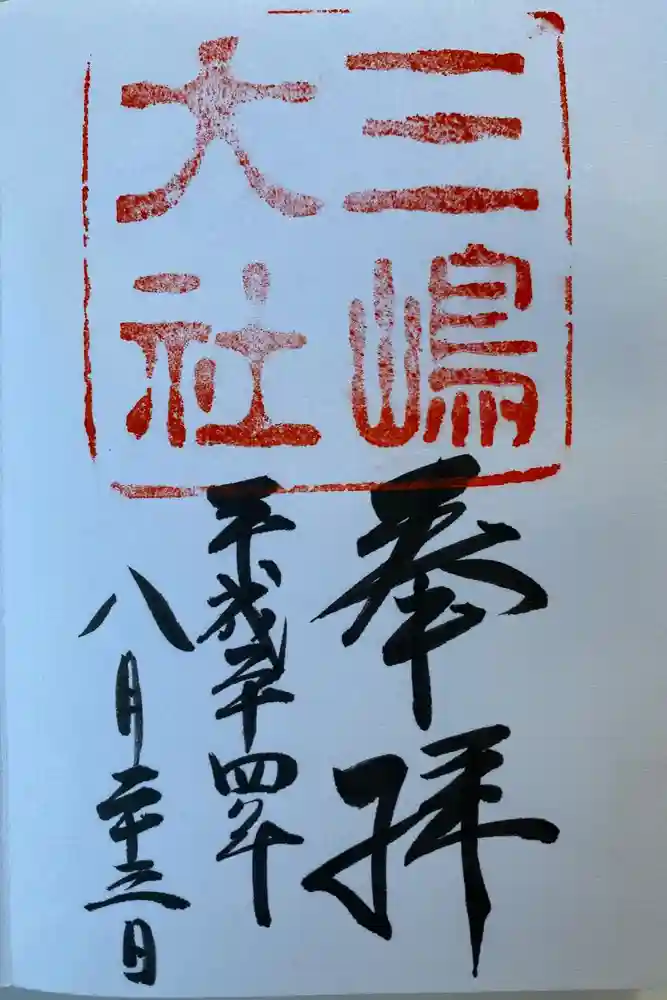 三嶋
大社
奉拝
平成二十四年
八月二十三日